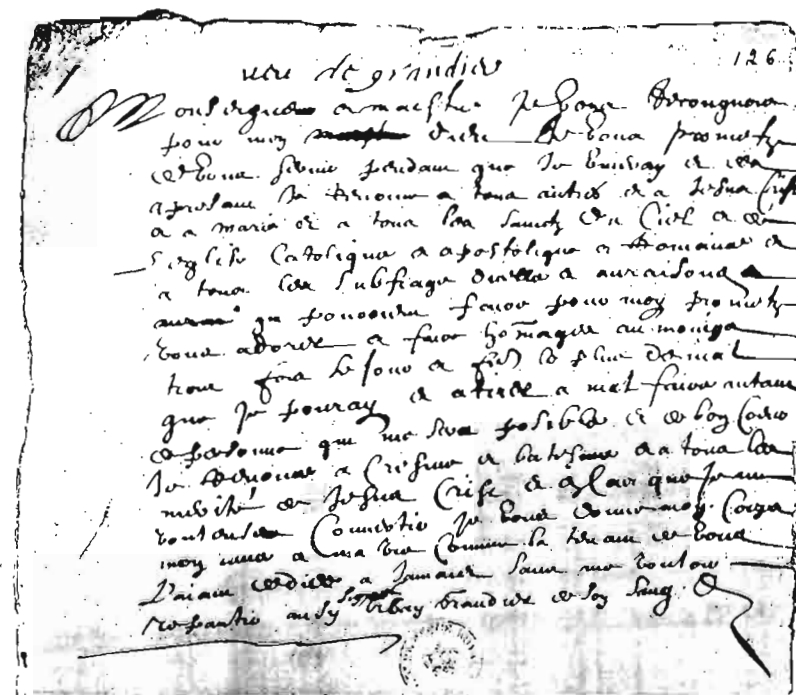 126
veu de grandier
Monseigneur et maistre Je vous recongnois
pour mon dieu Je vous prometz
de vous servir pendant que Je vivray et des
apresant Je renonce a tous autres et a Jesus Crist
et a marie et a tous les sainctz du Ciel et de
leglise Catolique et apostolique et Romaine et
a tous les subfrages dicelle et auraisons
qui pouroient faire pour moy prometz
vous adorer et faire homage au moings
trois fois le jour et le plus de mal
que je pouray et atirer a mal faire autant
de personne qui me sera posible et de bon Coeur
Je Renonce a Cresme et batesme et a tous les
merites de Jesus Crist et que Je me
vouluse Convertir Je vous donne mon Corps
mon ame et ma vie Comme la tenant de vous
Laiant dedie a Jamais sans me vouloir
repantir signe Urbain Grandier de son sang